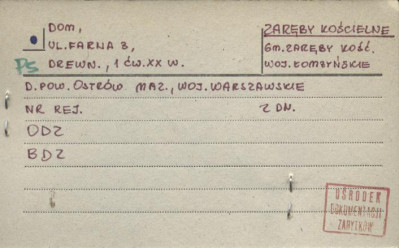 DOM,
UL. FARNA 3,
PS DREWN., 1 ĆW. XX W.
ZARĘBY KOŚCIELNE
GM. ZARĘBY KOŚC.
WOJ. ŁOMŻYŃSKIE
D. POW. OSTRÓW MAZ., WOJ. WARSZAWSKIE
NR REJ. Z DN.
ODZ
BDZ
OŚRODEK
DOKUMENTACJI
ZABYTKÓW